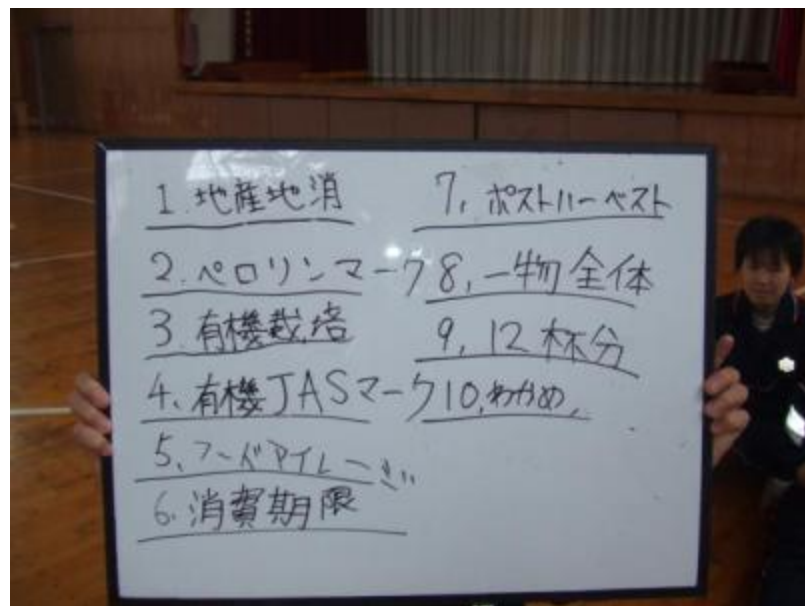 1.地産地消
2.ペロリンマーク
3.有機栽培
4、有機JASマーク
5、フードマイレージ
6.消費期限
7,ポストハーベスト
8,一物全体
9,12杯分
10,わかめ,